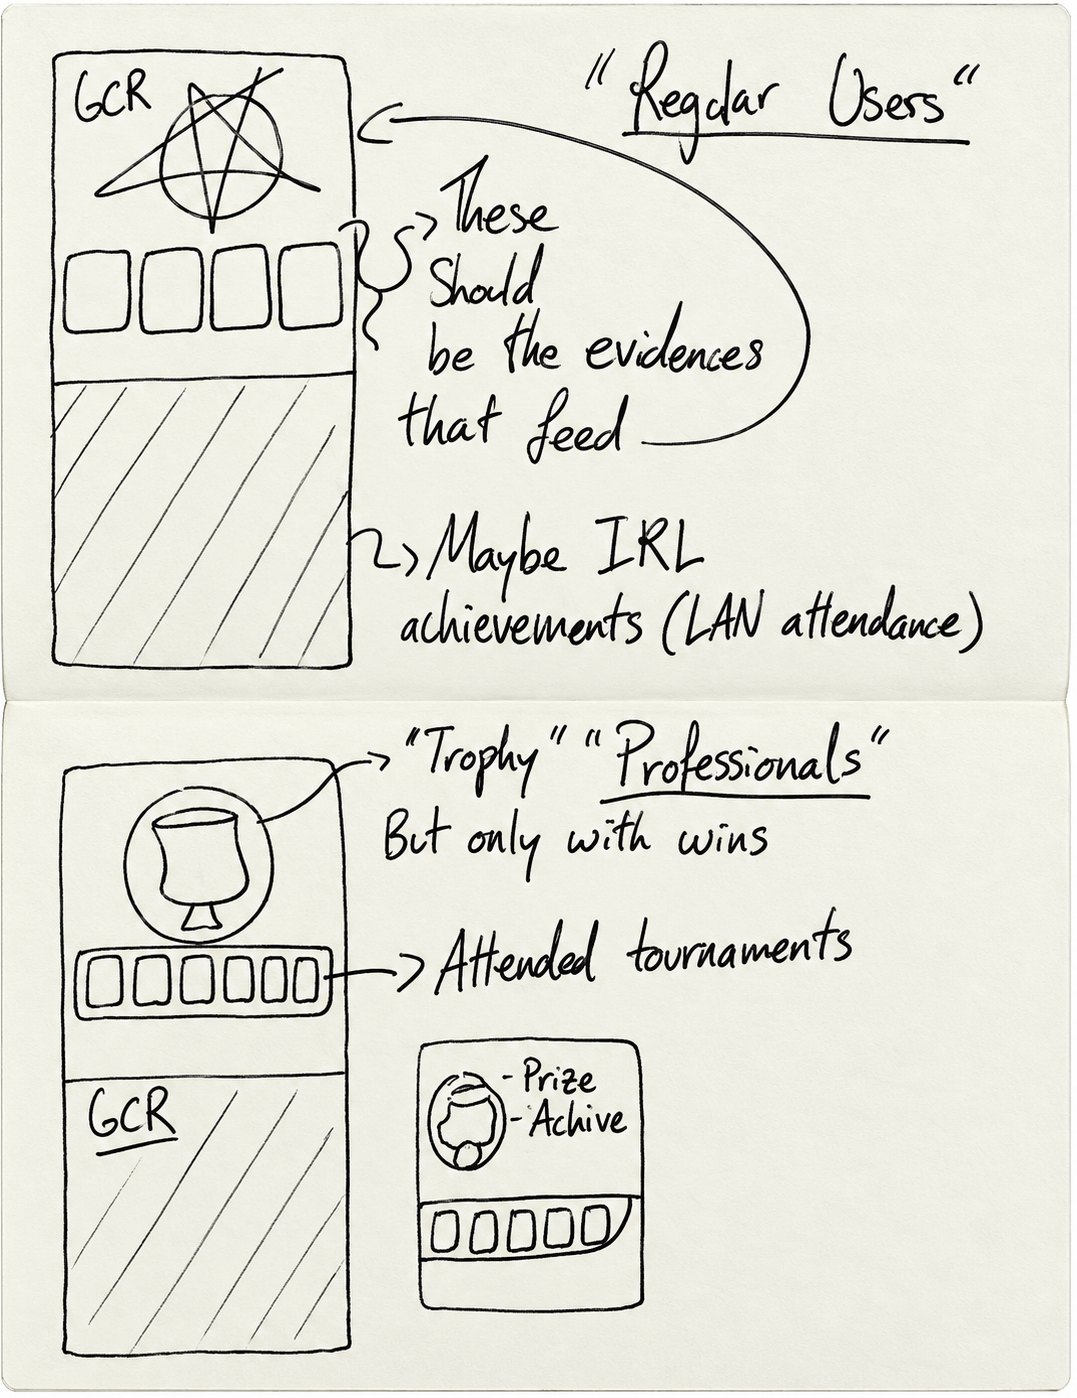 GCR
"Regular Users"
These
Should
be the evidences
that feed
Maybe IRL
achievements (LAN attendance)
"Trophy" "Professionals"
But only with wins
Attended tournaments
GCR
- Prize
- Achive